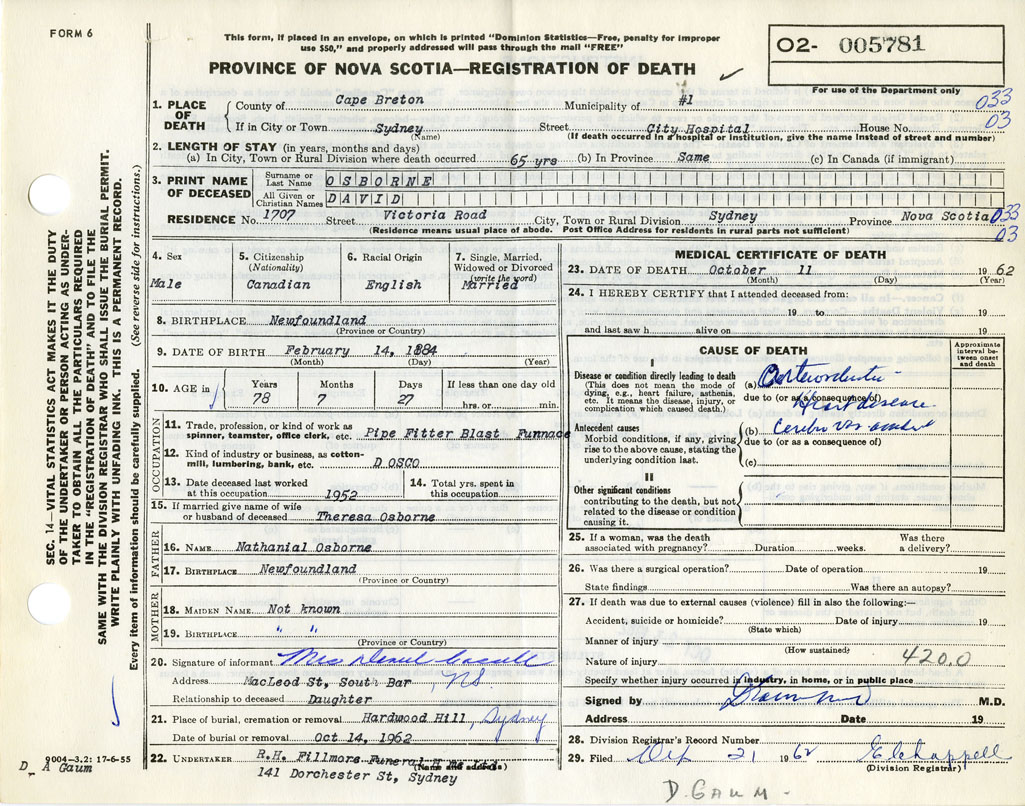 FORM 6
This form, if placed in an envelope, on which is printed "Dominion Statistics—Free, penalty for improper
use $50," and properly addressed will pass through the mail "FREE"
O2- 005781
PROVINCE OF NOVA SCOTIA—REGISTRATION OF DEATH
For use of the Department only
1. PLACE OF DEATH County of Cape Breton Municipality of #1 033
If in City or Town Sydney Street City Hospital House No. 03
(Name) (If death occurred in a hospital or institution, give the name instead of street and number)
2. LENGTH OF STAY (in years, months and days)
(a) In City, Town or Rural Division where death occurred 65 yrs (b) In Province Same (c) In Canada (if immigrant)
3. PRINT NAME OF DECEASED Surname or Last Name OSBORNE
All Given or Christian Names DAVID
RESIDENCE No. 1707 Street Victoria Road City, Town or Rural Division Sydney Province Nova Scotia 033
(Residence means usual place of abode. Post Office Address for residents in rural parts not sufficient) 03
4. Sex Male
5. Citizenship (Nationality) Canadian
6. Racial Origin English
7. Single, Married, Widowed or Divorced (write the word) Married
8. BIRTHPLACE Newfoundland
(Province or Country)
9. DATE OF BIRTH February 14, 1884
(Month) (Day) (Year)
10. AGE in Years 78 Months 7 Days 27 If less than one day old hrs. or min.
OCCUPATION
11. Trade, profession, or kind of work as spinner, teamster, office clerk, etc. Pipe Fitter Blast Funnace
12. Kind of industry or business, as cotton-mill, lumbering, bank, etc. DOSCO
13. Date deceased last worked at this occupation 1952
14. Total yrs. spent in this occupation
15. If married give name of wife or husband of deceased Theresa Osborne
FATHER
16. NAME Nathanial Osborne
17. BIRTHPLACE Newfoundland
(Province or Country)
MOTHER
18. MAIDEN NAME Not known
19. BIRTHPLACE " "
(Province or Country)
20. Signature of informant Mrs
Address MacLeod St, South Bar, NS.
Relationship to deceased Daughter
21. Place of burial, cremation or removal Hardwood Hill, Sydney
Date of burial or removal Oct 14, 1962
22. UNDERTAKER R.H. Fillmore Funeral
(Name and address)
141 Dorchester St, Sydney
MEDICAL CERTIFICATE OF DEATH
23. DATE OF DEATH October 11 1962
(Month) (Day) (Year)
24. I HEREBY CERTIFY that I attended deceased from:
19 to 19
and last saw h alive on 19
CAUSE OF DEATH
Approximate interval between onset and death
I
Disease or condition directly leading to death
(This does not mean the mode of
dying, e.g., heart failure, asthenia,
etc. It means the disease, injury, or
complication which caused death.)
(a)
due to (or as a consequence of)
Heart disease
Antecedent causes
Morbid conditions, if any, giving
rise to the above cause, stating the
underlying condition last.
(b)
due to (or as a consequence of)
(c)
II
Other significant conditions
contributing to the death, but not
related to the disease or condition
causing it.
25. If a woman, was the death associated with pregnancy? Duration weeks. Was there a delivery?
26. Was there a surgical operation? Date of operation 19
State findings Was there an autopsy?
27. If death was due to external causes (violence) fill in also the following:—
Accident, suicide or homicide? Date of injury 19
(State which)
Manner of injury
(How sustained)
Nature of injury 420.0
Specify whether injury occurred in industry, in home, or in public place
Signed by M.D.
Address Date 19
28. Division Registrar's Record Number
29. Filed 21 1962 E Chappell
(Division Registrar)
SEC. 14—VITAL STATISTICS ACT MAKES IT THE DUTY
OF THE UNDERTAKER OR PERSON ACTING AS UNDER-
TAKER TO OBTAIN ALL THE PARTICULARS REQUIRED
IN THE "REGISTRATION OF DEATH" AND TO FILE THE
SAME WITH THE DIVISION REGISTRAR WHO SHALL ISSUE THE BURIAL PERMIT.
WRITE PLAINLY WITH UNFADING INK. THIS IS A PERMANENT RECORD.
Every item of information should be carefully supplied. (See reverse side for instructions.)
9004-3.2: 17-6-55
D A Gaum
D. GAUM -